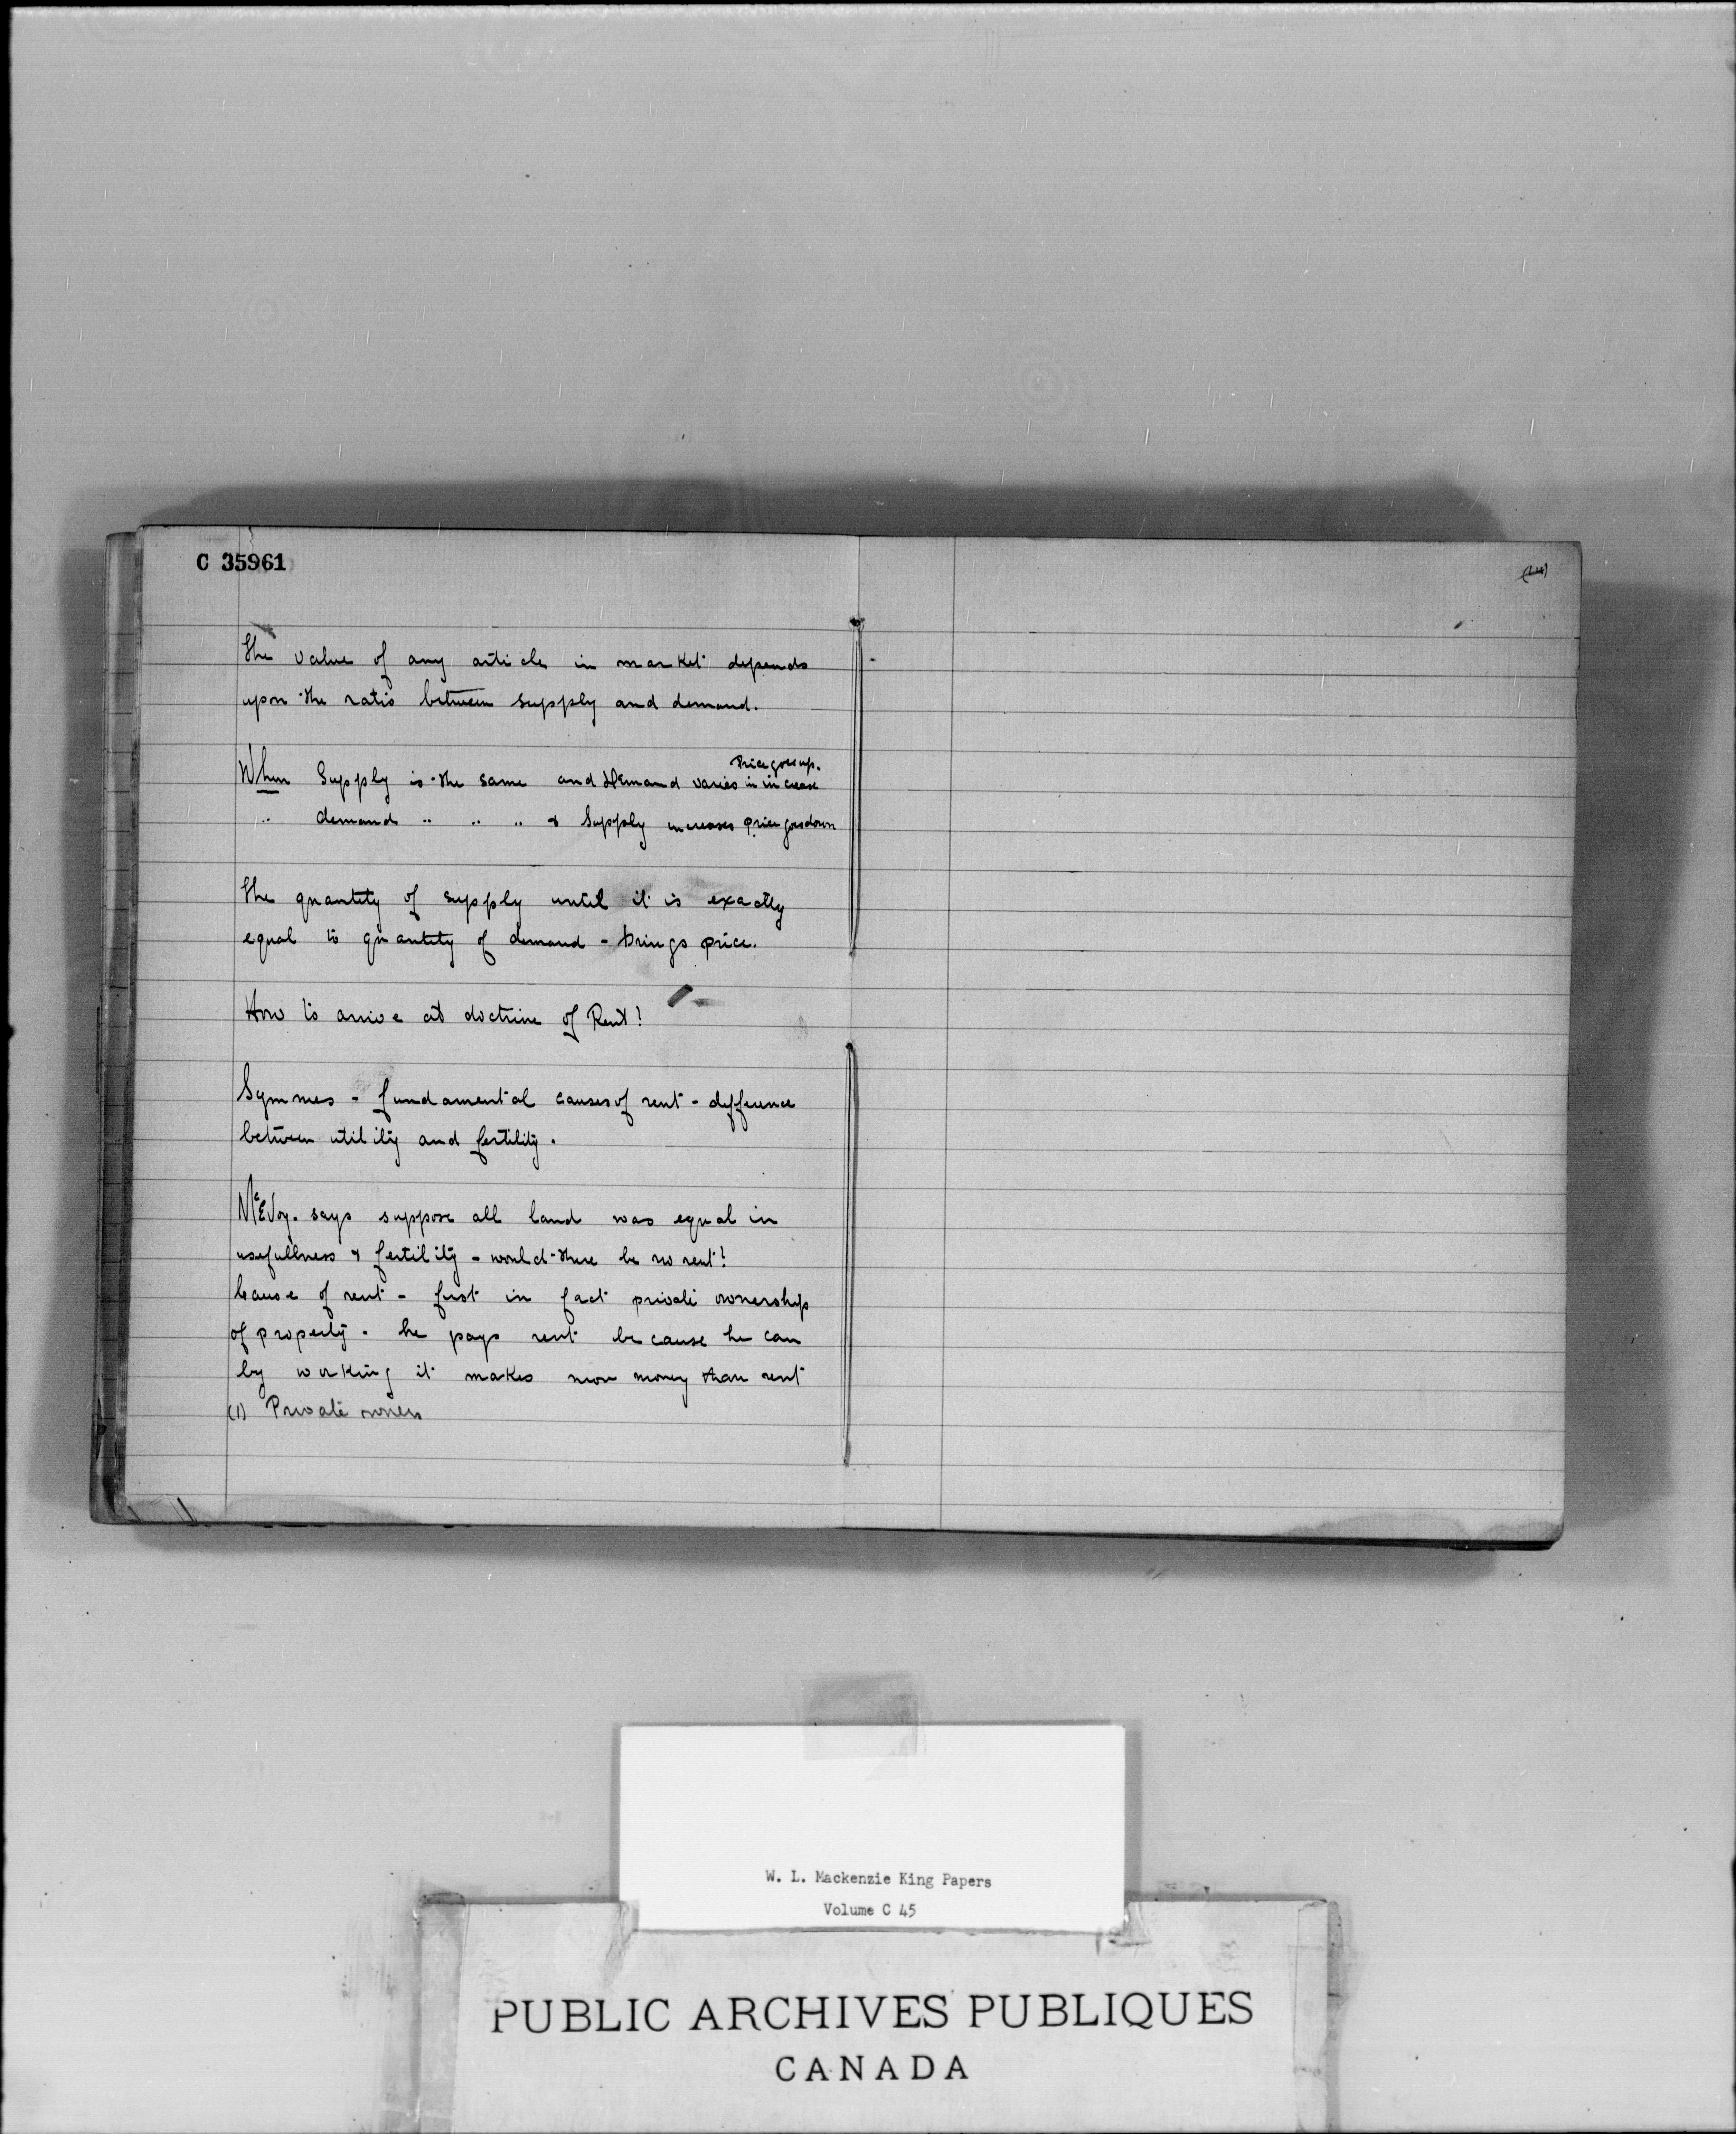 C 35961
The value of any article in market depends
upon the ratio between supply and demand.
Price goes up.
When Supply is the same and Demand varies in increase
" demand " " " & Supply increases price goes down
The quantity of supply until it is exactly
equal to quantity of demand - brings price.
How to arrive at doctrine of Rent?
Symmes - fundamental causes of rent - difference
between utility and fertility.
McEvoy. says suppose all land was equal in
usefullness & fertility - would there be no rent?
Cause of rent - first in fact private ownership
of property. he pays rent because he can
by working it makes more money than rent
(1) Private owners
W. L. Mackenzie King Papers
Volume C 45
PUBLIC ARCHIVES PUBLIQUES
CANADA